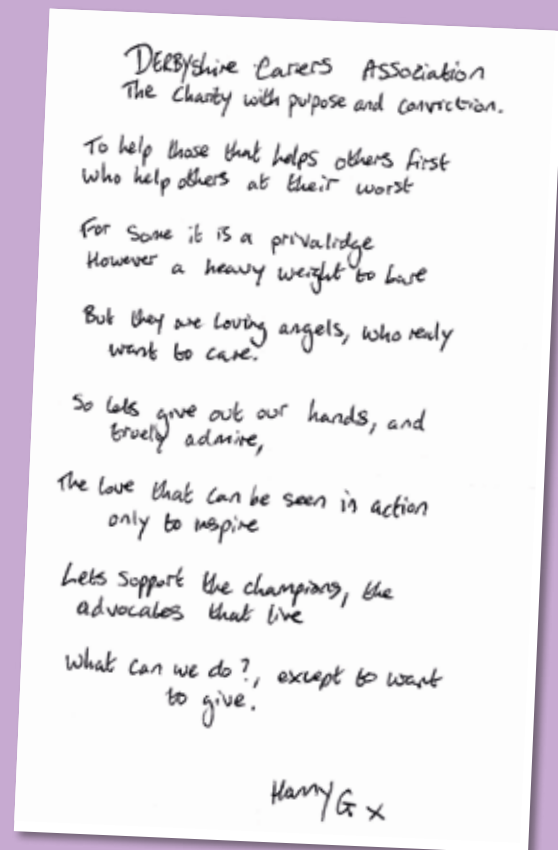 DERBYshire Carers Association
The Charity with purpose and conviction.
To help those that helps others first
who help others at their worst
For some it is a privalidge
However a heavy weight to bare
But they are loving angels, who realy
want to care.
So lets give out our hands, and
truely admire,
The love that can be seen in action
only to inspire
Lets support the champions, the
advocates that live
What can we do?, except to want
to give.
Harry G x